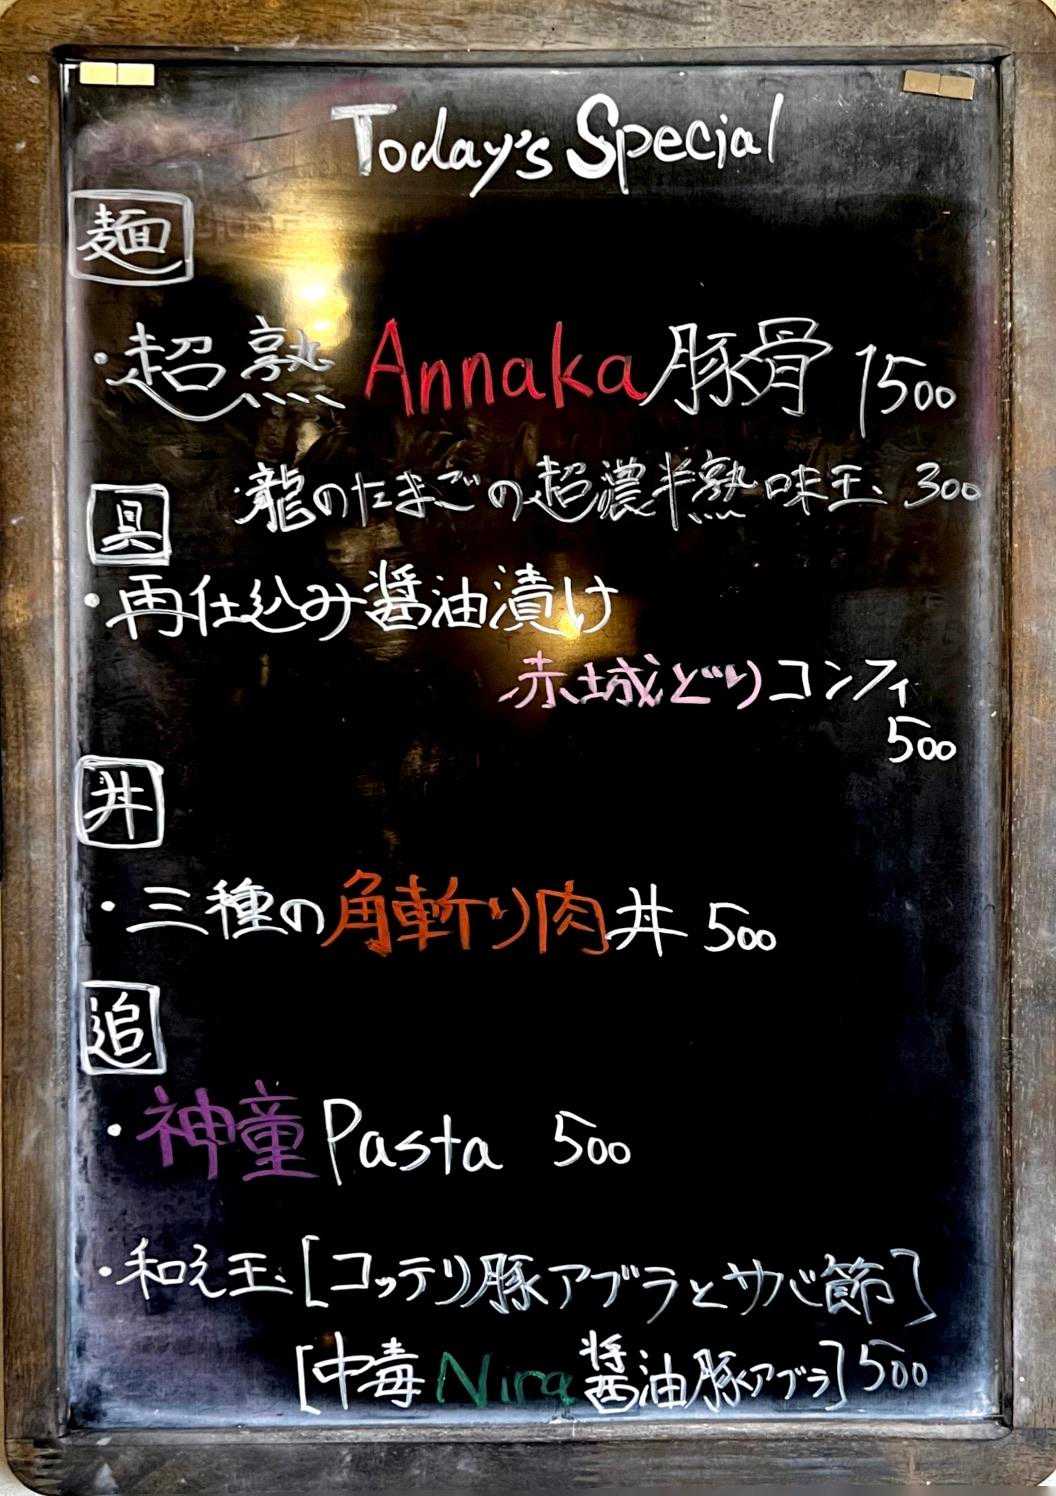 Today's Special
麺
・超熟 Annaka豚骨 1500
具
・龍のたまごの超濃半熟味玉 300
・再仕込み醤油漬け
赤城どりコンフィ
500
丼
・三種の角斬り肉丼 500
追
・神童Pasta 500
・和え玉[コッテリ豚アブラとサバ節]
[中毒Nira醤油豚アブラ]500